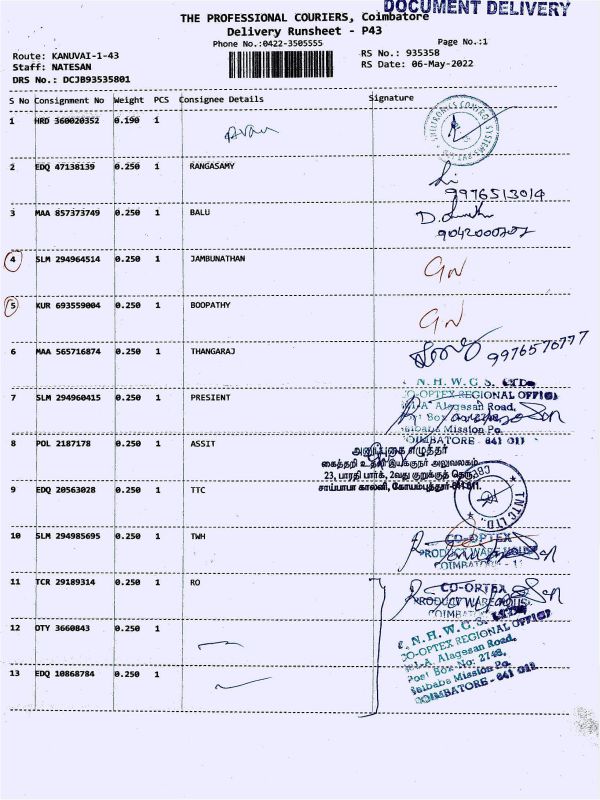 DOCUMENT DELIVERY
THE PROFESSIONAL COURIERS, Coimbatore
Delivery Runsheet - P43
Phone No.:0422-3505555
Page No.:1
Route: KANUVAI-1-43
RS No.: 935358
Staff: NATESAN
RS Date: 06-May-2022
DRS No.: DCJB93535801
S No Consignment No Weight PCS Consignee Details Signature
1 HRD 360020352 0.190 1
2 EDQ 47138139 0.250 1 RANGASAMY
9976513014
3 MAA 857373749 0.250 1 BALU
4 SLM 294964514 0.250 1 JAMBUNATHAN GN
5 KUR 693559004 0.250 1 BOOPATHY GN
6 MAA 565716874 0.250 1 THANGARAJ
9976576777
7 SLM 294960415 0.250 1 PRESIENT
N. H. W. C. S. LTD.
CO-OPTEX REGIONAL OFFICE
Alagesan Road,
Post Box
Saibaba Mission Po.
COIMBATORE - 641 011
8 POL 2187178 0.250 1 ASSIT
அனுப்புகை எழுத்தர்
கைத்தறி உதவி இயக்குநர் அலுவலகம்
23, பாரதி பார்க், 2வது குறுக்குத் தெரு,
சாய்பாபா காலனி, கோயம்புத்தூர்-641 011.
9 EDQ 20563028 0.250 1 TTC
TNTC LTD. CBE
10 SLM 294985695 0.250 1 TWH
CO-OPTEX
PRODUCT WAREHOUSE
COIMBATORE - 11
11 TCR 29189314 0.250 1 RO
CO-OPTEX
PRODUCT WAREHOUSE
12 DTY 3660843 0.250 1
N. H. W. C. S. LTD.
CO-OPTEX REGIONAL OFFICE
Alagesan Road,
Post Box No: 2748,
Saibaba Mission Po.
COIMBATORE - 641 011
13 EDQ 10868784 0.250 1